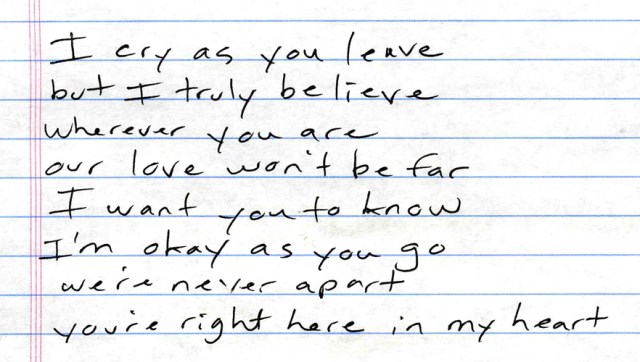 I cry as you leave
but I truly believe
wherever you are
our love won't be far
I want you to know
I'm okay as you go
we're never apart
you're right here in my heart